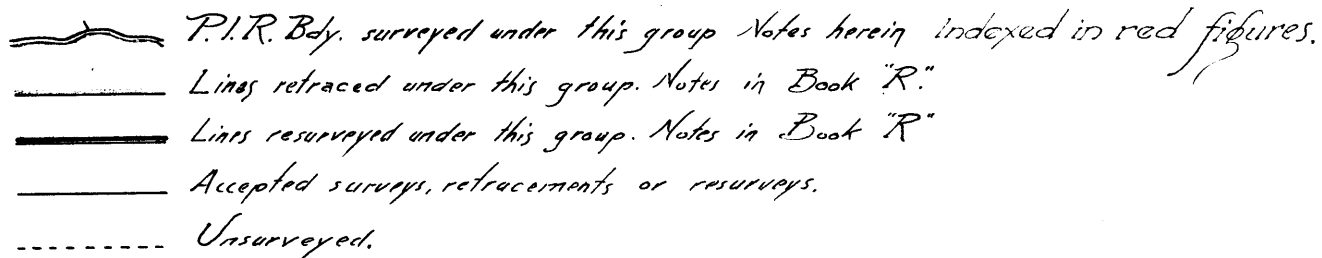 P.I.R. Bdy. surveyed under this group Notes herein indexed in red figures.
Lines retraced under this group. Notes in Book "R."
Lines resurveyed under this group. Notes in Book "R"
Accepted surveys, retracements or resurveys.
Unsurveyed.